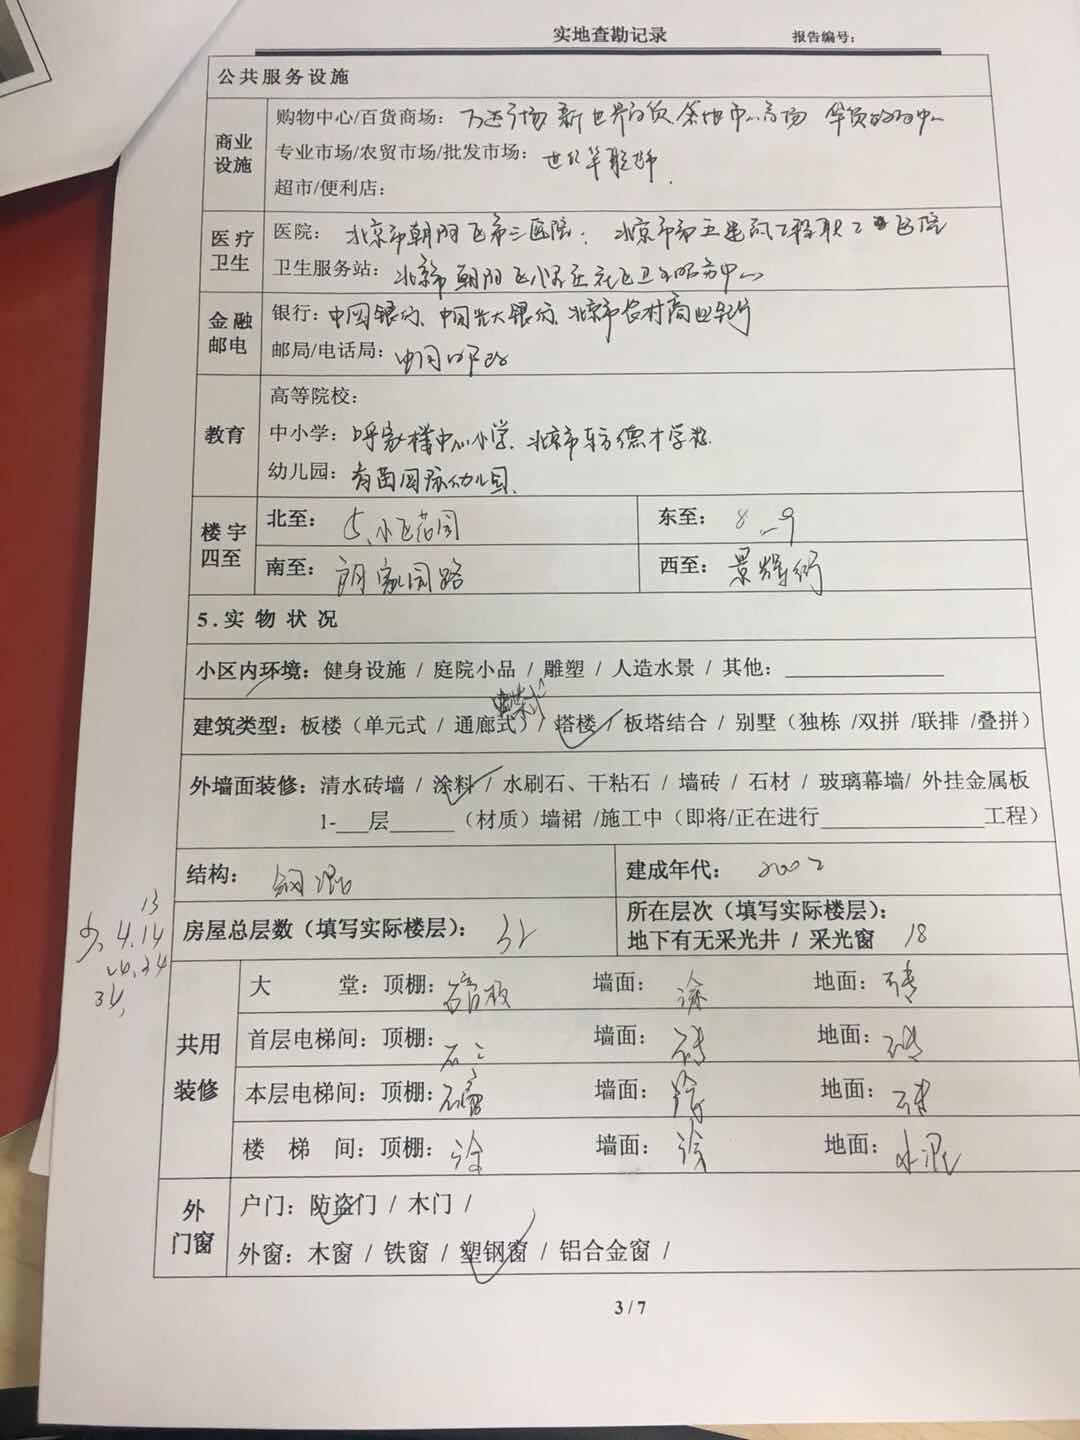 实地查勘记录 报告编号：
公共服务设施
商业设施
购物中心/百货商场：万达广场 新世界百货 余地中心商场 华贸购物中心
专业市场/农贸市场/批发市场：世纪华联超市
超市/便利店：
医疗卫生
医院：北京市朝阳区第三医院；北京市第五建筑工程职工医院
卫生服务站：北京市朝阳区八里庄社区卫生服务中心
金融邮电
银行：中国银行、中国光大银行、北京市农村商业银行
邮局/电话局：中国邮政
教育
高等院校：
中小学：呼家楼中心小学、北京市东方德才学校
幼儿园：有茵国际幼儿园
楼宇四至
北至：小区花园 东至：8 9
南至：朗家园路 西至：景辉街
5.实物状况
小区内环境：健身设施 / 庭院小品 / 雕塑 / 人造水景 / 其他：
建筑类型：板楼（单元式 / 通廊式）/ 塔楼 / 板塔结合 / 别墅（独栋 /双拼 /联排 /叠拼）
外墙面装修：清水砖墙 / 涂料 / 水刷石、干粘石 / 墙砖 / 石材 / 玻璃幕墙/ 外挂金属板
1-___层______（材质）墙裙 /施工中（即将/正在进行_______________工程）
结构：钢混 建成年代：2002
13
4.14
24
房屋总层数（填写实际楼层）：32 所在层次（填写实际楼层）：
地下有无采光井 / 采光窗 18
共用装修
大堂：顶棚：石膏板 墙面：涂 地面：砖
首层电梯间：顶棚：石 墙面：砖 地面：砖
本层电梯间：顶棚：石膏 墙面：涂 地面：砖
楼梯间：顶棚：涂 墙面：涂 地面：水泥
外门窗
户门：防盗门 / 木门 /
外窗：木窗 / 铁窗 / 塑钢窗 / 铝合金窗 /
3 / 7